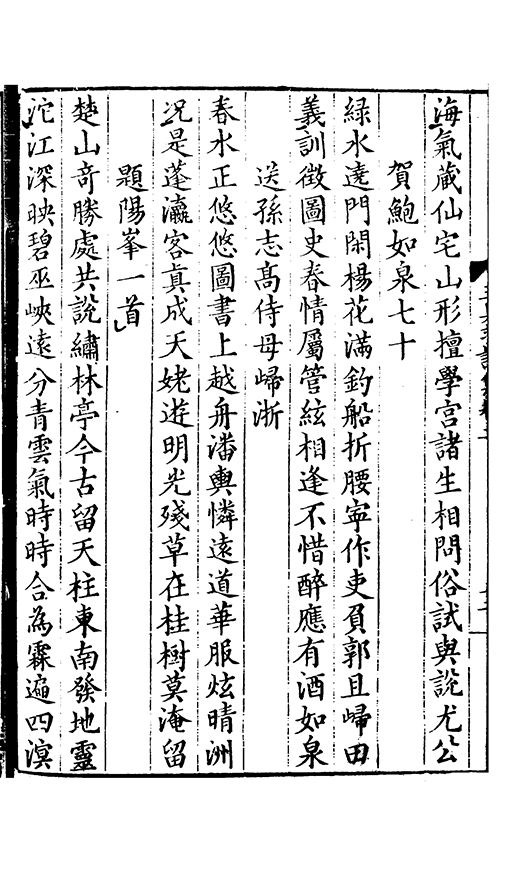 海氣蔵仙宅山形擅學宫諸生相問俗試與說尤公
賀鮑如泉七十
緑水遶門閑楊花滿釣船折腰寜作吏負郭且歸田
義訓徴圖史春情屬管絃相逢不惜醉應有酒如泉
送孫志髙侍母歸浙
春水正悠悠圖書上越舟潘輿憐遠道華服炫晴洲
况是蓬瀛客真成天姥遊明光殘草在桂樹莫淹留
題陽峯一首
楚山竒勝處共説繡林亭今古留天柱東南發地靈
沱江深映碧巫峽遠分青雲氣時時合為霖遍四溟